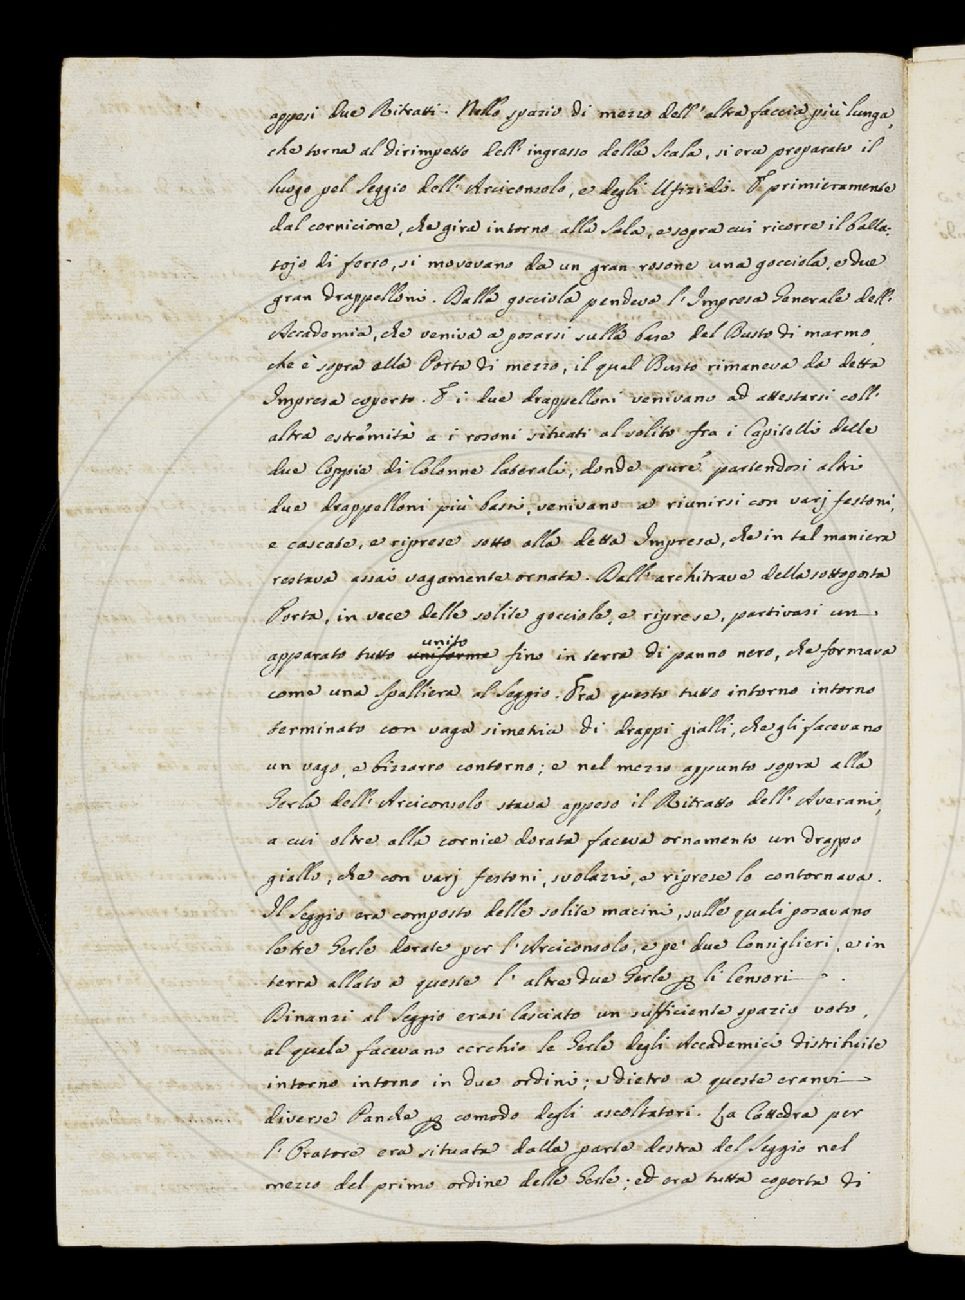 apposi due Ritratti. Nello spazio di mezzo dell'altra faccia più lunga,
che torna al dirimpetto dell'ingresso della Scala, si era preparato il
luogo pel Seggio dell'Arciconsolo, e degli Ufiziali. E primieramente
dal cornicione, che gira intorno alla Sala, e sopra cui ricorre il balla-
tojo di ferro, si movevano da un gran rosone una gocciola, e due
gran drappelloni. Dalla gocciola pendeva l'Impresa Generale dell'
Accademia, che veniva a posarsi sulla base del Busto di marmo,
che è sopra alla Porta di mezzo, il qual Busto rimaneva da detta
Impresa coperto. E i due drappelloni venivano ad attestarsi coll'
altra estremità a i rosoni situati al solito fra i Capitelli delle
due Coppie di Colonne laterali, donde pure partendosi altri
due drappelloni più bassi, venivano a riunirsi con varj festoni,
e cascate, e riprese sotto alla detta Impresa, che in tal maniera
restava assai vagamente ornata. Dall'architrave della sottoposta
Porta, in vece delle solite gocciole, e riprese, partivasi un
apparato tutto uniforme unito fino in terra di panno nero, che formava
come una spalliera al Seggio. Era questo tutto intorno intorno
terminato con vaga simetria di drappi gialli, che gli facevano
un vago, e bizzarro contorno; e nel mezzo appunto sopra alla
Gerla dell'Arciconsolo stava apposo il Ritratto dell'Averani,
a cui oltre alla cornice dorata faceva ornamento un drappo
giallo, che con varj festoni, svolazzi, e riprese lo contornava.
Il Seggio era composto delle solite macini, sulle quali posavano
le tre Gerle dorate per l'Arciconsolo, e pe' due Consiglieri, e in
terra allato a queste l'altre due Gerle p li Censori.
Dinanzi al Seggio erasi lasciato un sufficiente spazio voto,
al quale facevano cerchio le Gerle degli Accademici distribuite
intorno intorno in due ordini; e dietro a queste eranvi
diverse Panche p comodo degli ascoltatori. La Cattedra per
l'Oratore era situata dalla parte destra del Seggio nel
mezzo del primo ordine delle Gerle; ed era tutta coperta di